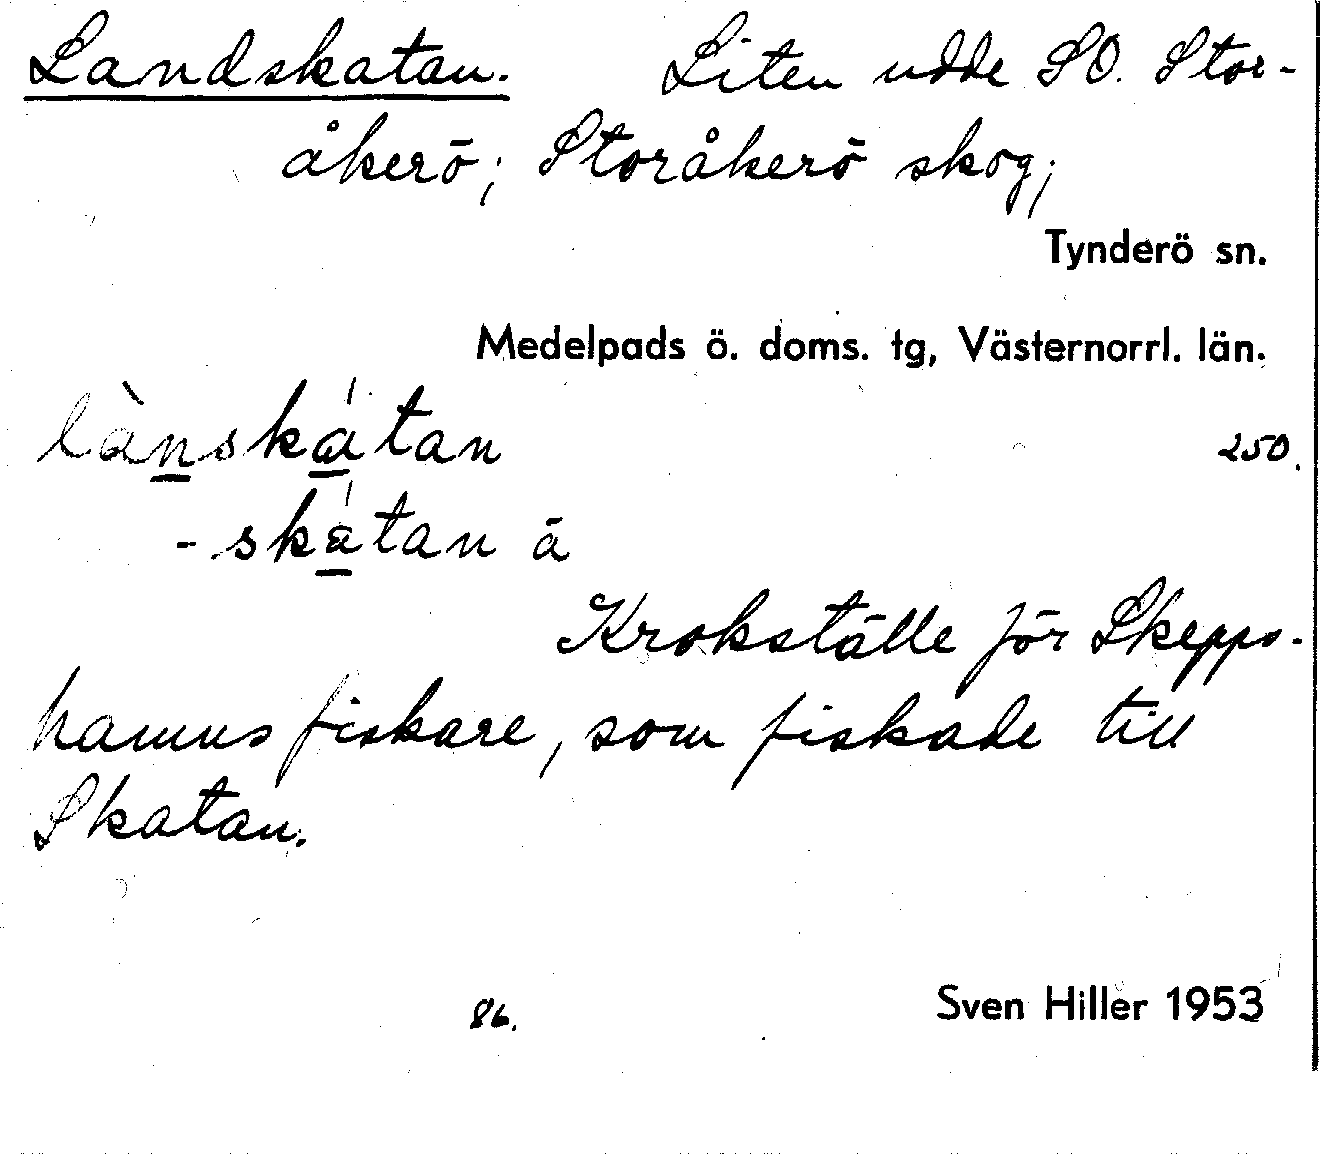 Landskatan. Liten udde SO. Stor-
åkerö; Storåkerö skog;
Tynderö sn.
Medelpads ö. doms. tg, Västernorrl. län.
lànskátan 250.
- skátan ä
Krokställe för Skepps-
hamns fiskare, som fiskade till
Skatan.
86. Sven Hiller 1953